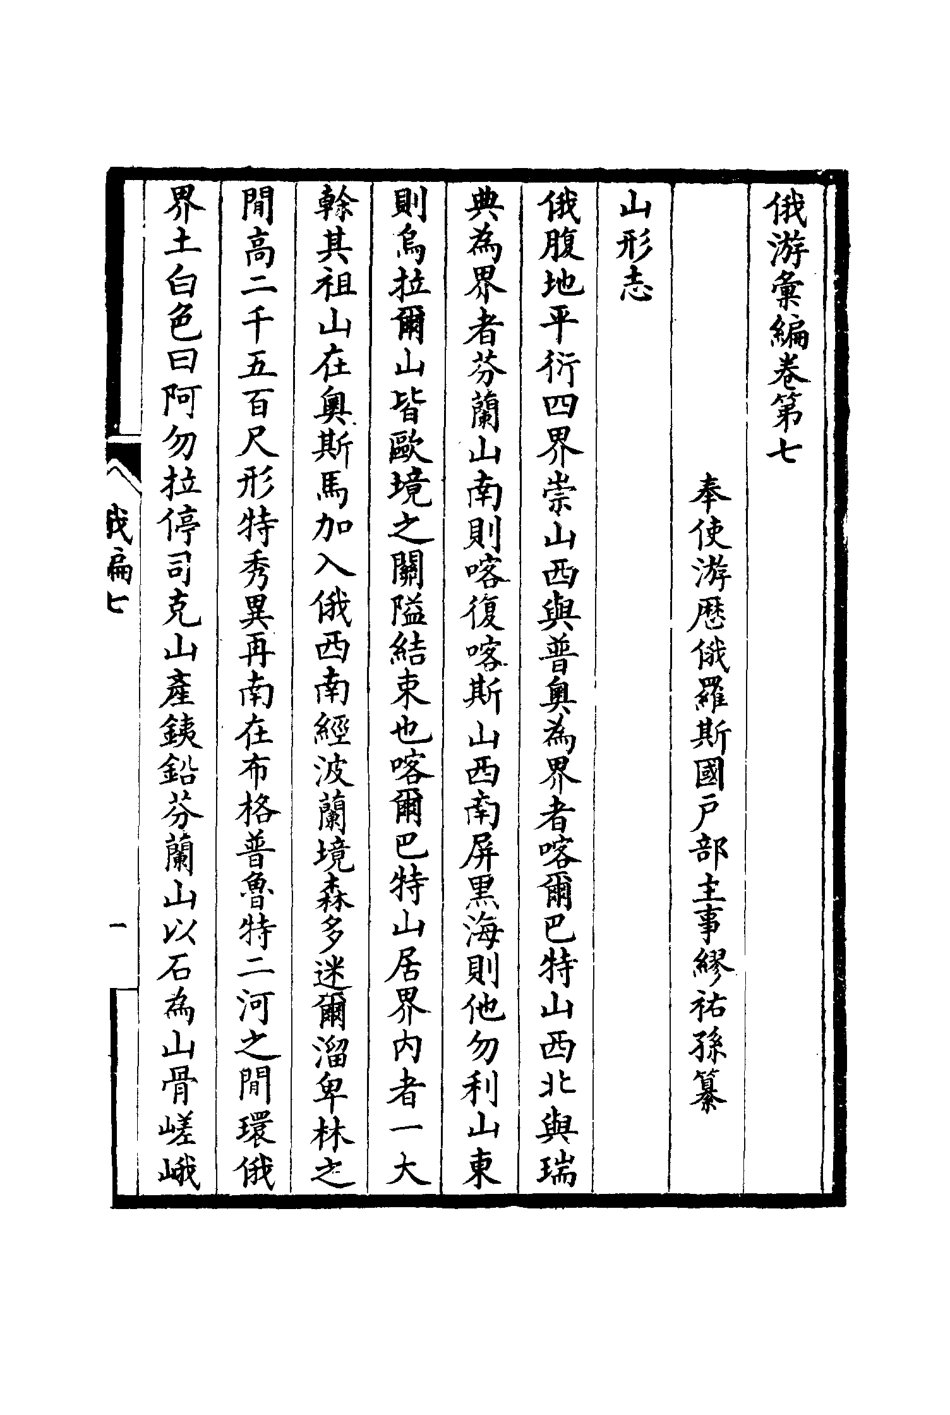 俄游彙編卷第七
奉使游歷俄羅斯國戶部主事繆祐孫纂
山形志
俄腹地平衍四界崇山西與普奧為界者喀爾巴特山西北與瑞
典為界者芬蘭山南則喀復喀斯山西南屏黑海則他勿利山東
則烏拉爾山皆歐境之關隘結束也喀爾巴特山居界內者一大
榦其祖山在奧斯馬加入俄西南經波蘭境森多迷爾溜卑林之
閒高二千五百尺形特秀異再南在布格普魯特二河之閒環俄
界土白色曰阿勿拉停司克山產銕鉛芬蘭山以石為山骨嵯峨
俄編七
一